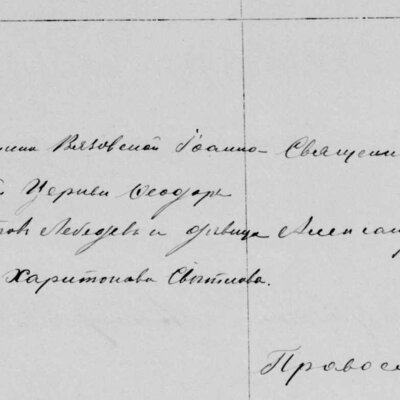 Вязовской Іоанно- Священни
Церкви Ѳеодоръ
Лебедевъ и дѣвица Алексан
Харитонова Свѣтлова.
Правосл